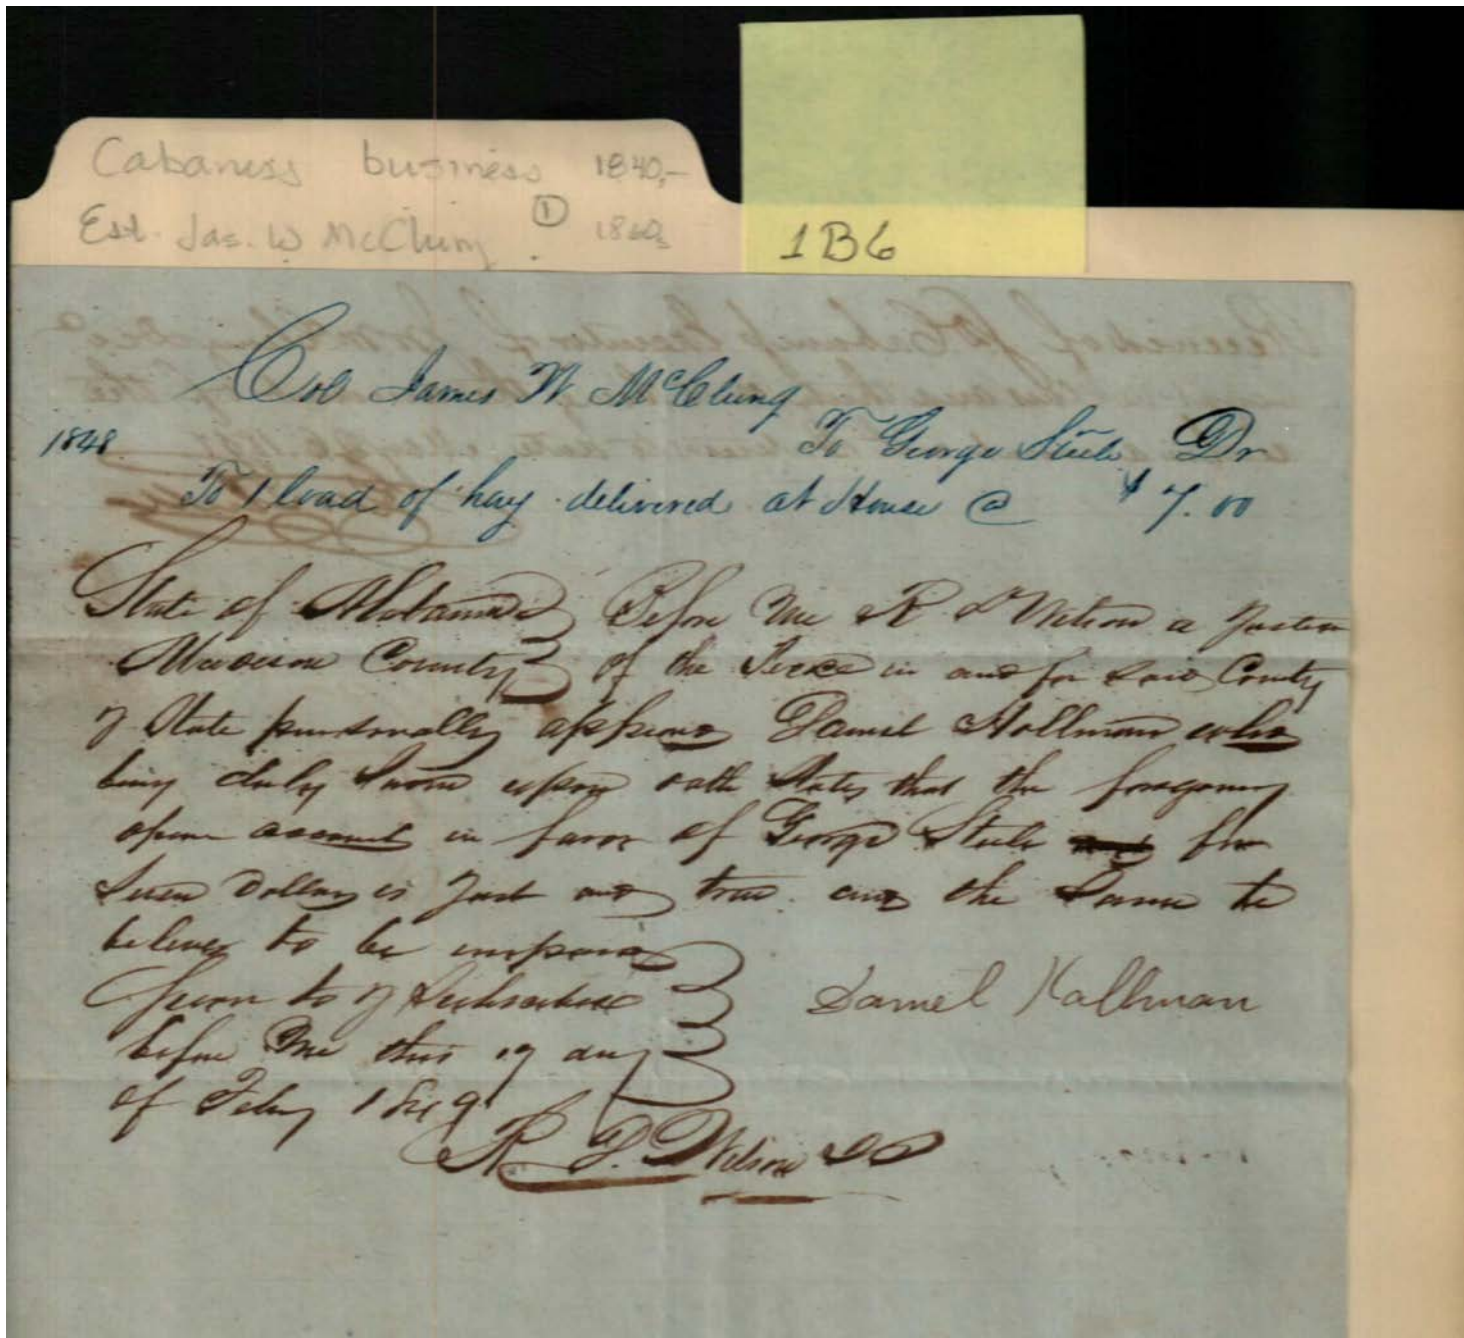 Cabaness business 1840,-
Est. Jas. W McClung 1 1860s
1B6
Col James W McClung
1848. To George Steele Dr
To 1 load of hay delivered at House @ $7.00
State of Alabama Before Me R L Wilson a Justice
Madison County of the Peace in and for Said County
& State personally appeared Daniel Hallman who
being duly Sworn upon oath States that the foregoing
open account in favor of George Steele for
Seven Dollars is Just and true and the Same he
believes to be unpaid
Sworn to & Subscribed
Daniel Hallman
before Me this 19 day
of Feby 1849
R L Wilson JP